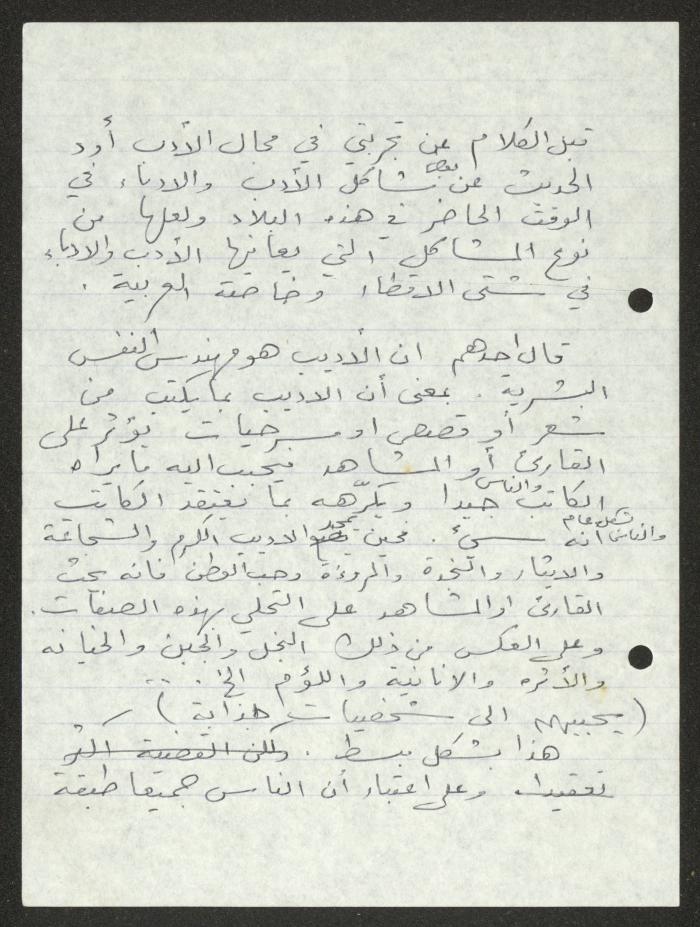 قبل الكلام عن تجربتي في مجال الأدب أود
الحديث عن بعض مشاكل الأدب والادباء في
الوقت الحاضر في هذه البلاد ولعلها من
نوع المشاكل التي يعانيها الأدب والادباء
في شتى الاقطار وخاصة العربية .
قال احدهم ان الأديب هو مهندس النفس
البشرية . بمعنى أن الاديب بما يكتب من
شعر أو قصص او مسرحيات يؤثر على
القارئ أو المشاهد فيحبب اليه ما يراه
الكاتب والناس جيدا ويكرّهه بما يعتقد الكاتب
والناس بشكل عام انه سيء . فحين يمجد الاديب الكرم والشجاعة
والايثار والنجدة والمروءة وحب الوطن فانه يحث
القارئ او المشاهد على التحلي بهذه الصفات .
وعلى العكس من ذلك البخل والجبن والخيانه
والأثره والانانية واللؤم الخ . . .
( يحببهم الى شخصيات جذابة )
هذا بشكل مبسط . ولكن القضية اكثر
تعقيدا . وعلى اعتبار أن الناس جميعا طبقة